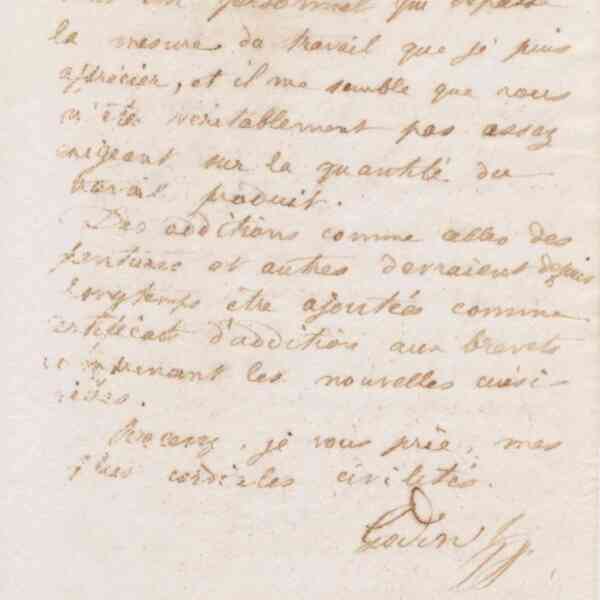 un personnel qui dépasse
la mesure du travail que je puis
apprécier, et il me semble que vous
n'ête véritablement pas assez
exigeant sur la quantité du
travail produit.
Des additions comme celles des
peintures et autres devraient depuis
longtemps être ajoutées comme
certificat d'addition aux brevets
concernant les nouvelles cuisi-
nières.
Recevez, je vous prie, mes
plus cordiales civilités.
Godin